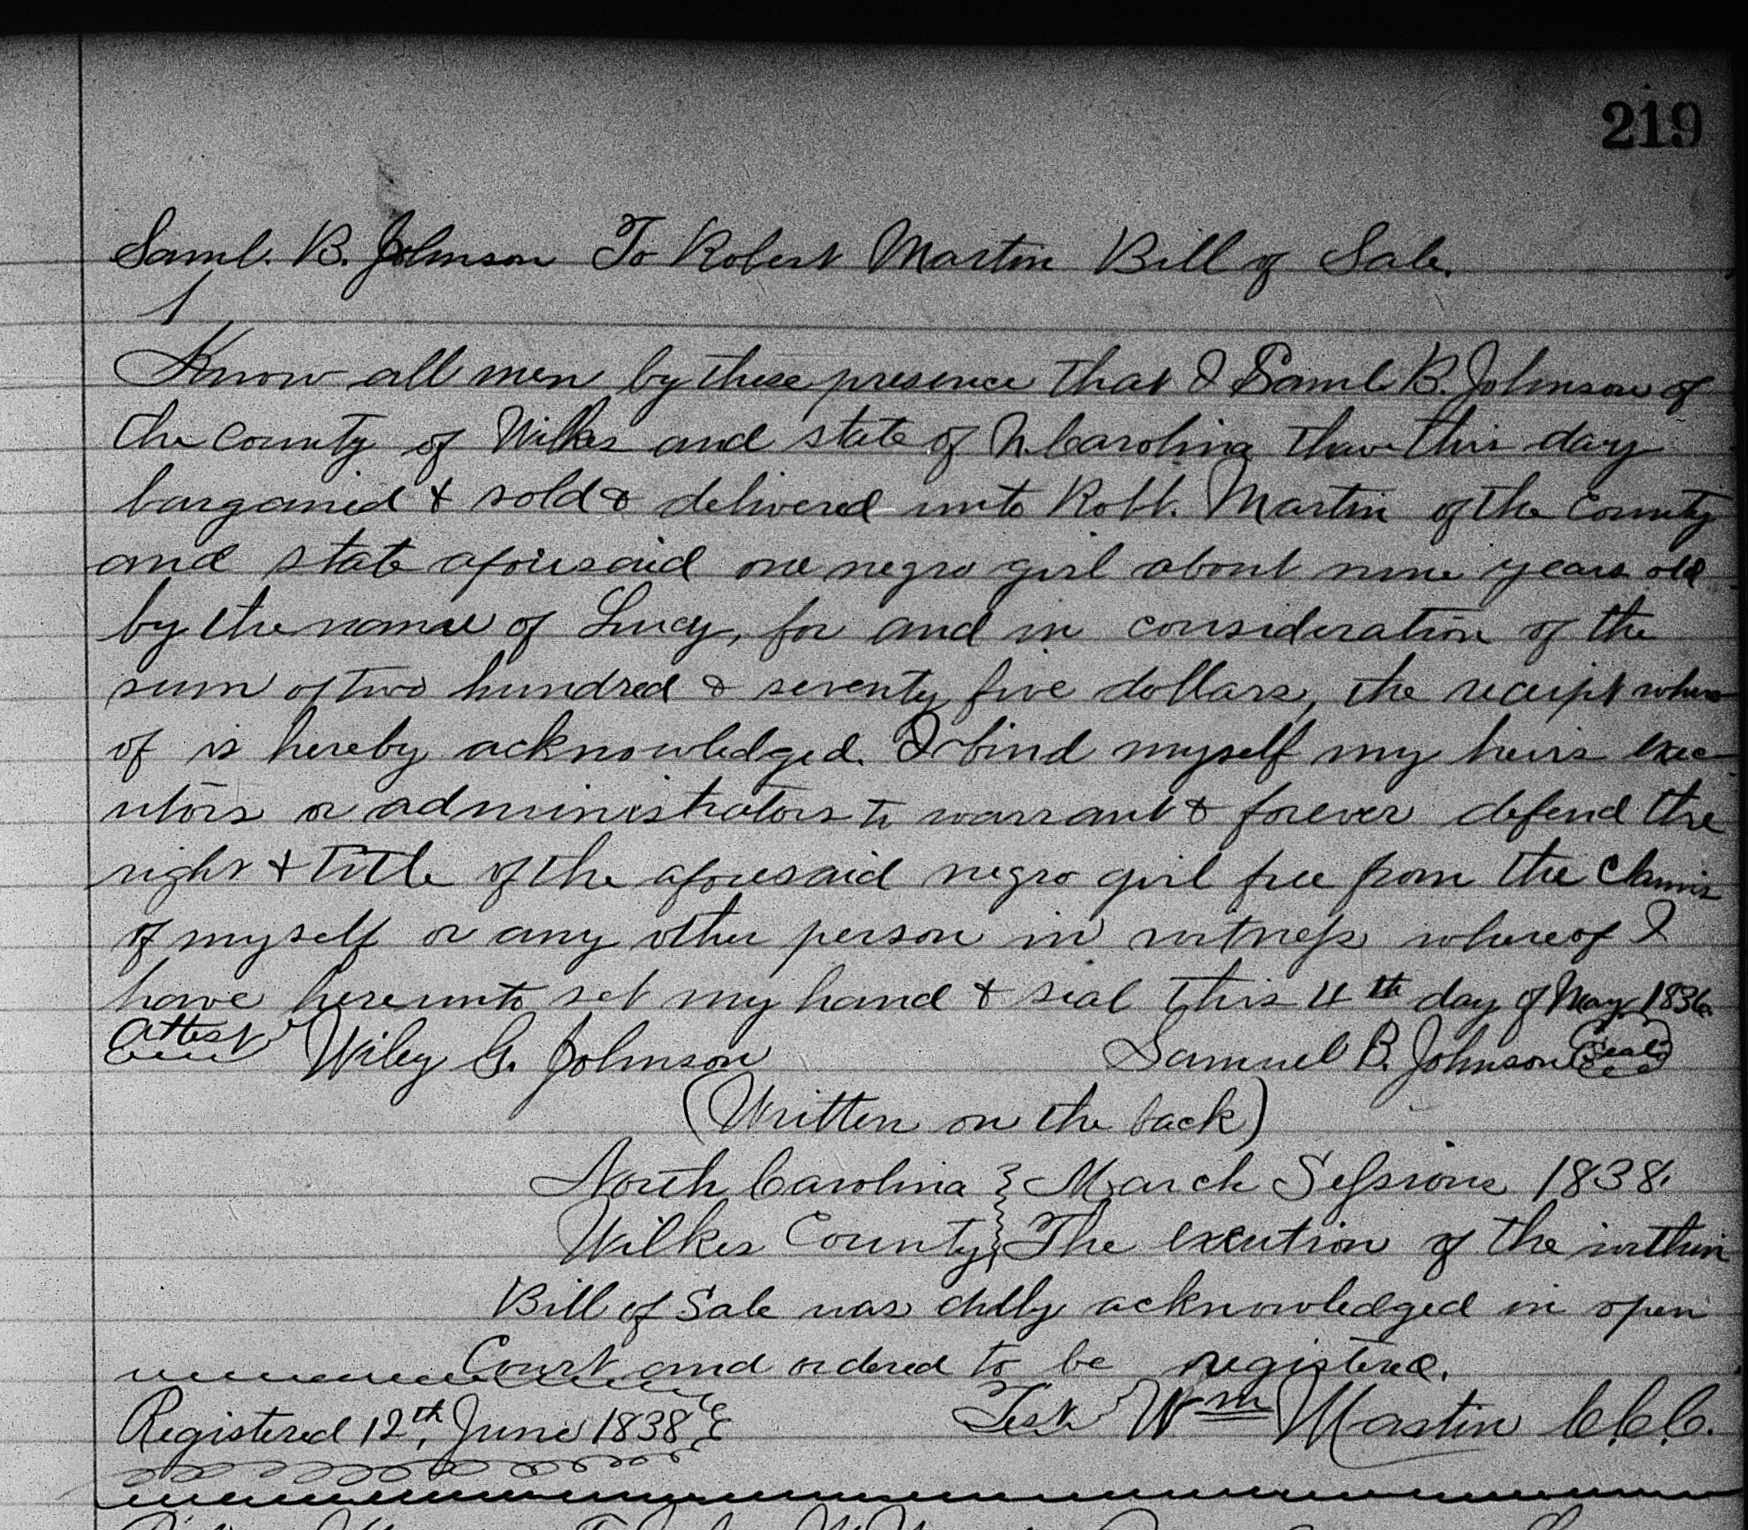 219
Saml. B. Johnson To Robert Martin Bill of Sale.
Know all men by these presence that I Saml B. Johnson of
the County of Wilkes and state of N. Carolina have this day
bargained & sold & delivered unto Robt. Martin of the County
and state aforesaid one negro girl about nine years old
by the name of Lucy, for and in consideration of the
sum of two hundred & seventy five dollars, the receipt where
of is hereby acknowledged. I bind myself my heirs exec
utors or administrators to warrant & forever defend the
right & title of the aforesaid negro girl free from the claims
of myself or any other person in witness whereof I
have hereunto set my hand & seal this 4th day of May 1836
Attest Wiley G. Johnson Samuel B. Johnson Seal
(Written on the back)
North Carolina } March Sessions 1838.
Wilkes County } The exeution of the within
Bill of Sale was dully acknowledged in open
Court and ordered to be registered.
Registered 12th, June 1838 Test Wm Martin C.C.C.